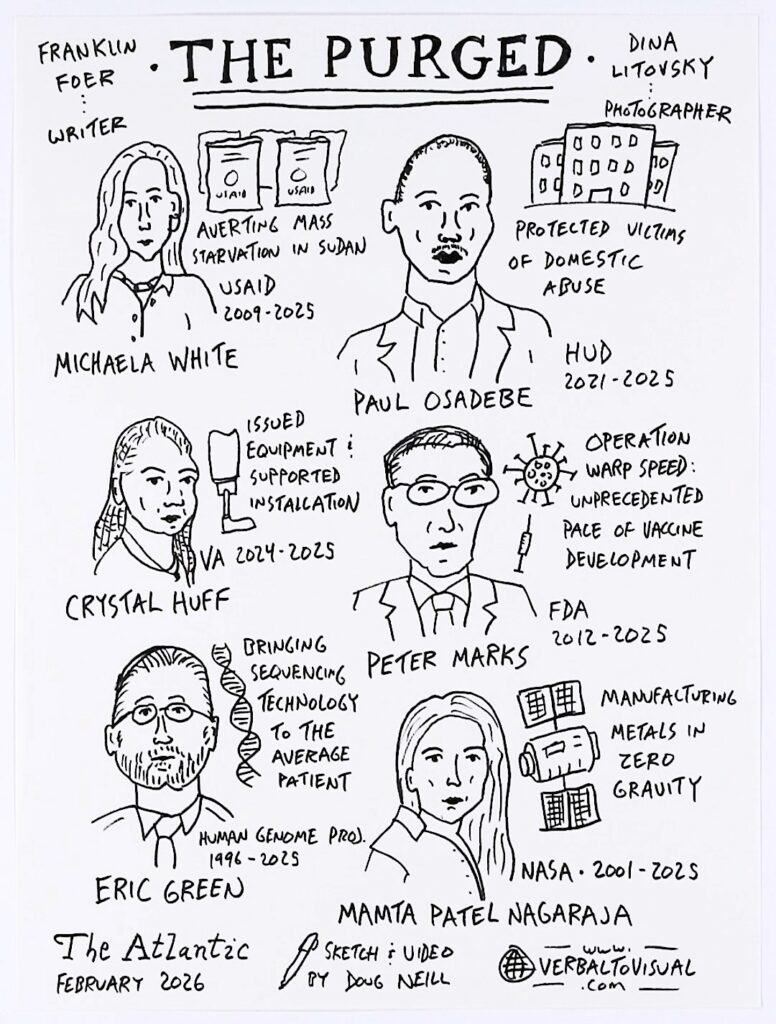 FRANKLIN
FOER
WRITER
· THE PURGED ·
DINA
LITOVSKY
PHOTOGRAPHER
USAID
USAID
AVERTING MASS
STARVATION IN SUDAN
USAID
2009-2025
MICHAELA WHITE
PROTECTED VICTIMS
OF DOMESTIC
ABUSE
HUD
2021-2025
PAUL OSADEBE
ISSUED
EQUIPMENT &
SUPPORTED
INSTALLATION
VA 2024-2025
CRYSTAL HUFF
OPERATION
WARP SPEED:
UNPRECEDENTED
PACE OF VACCINE
DEVELOPMENT
FDA
2012-2025
PETER MARKS
BRINGING
SEQUENCING
TECHNOLOGY
TO THE
AVERAGE
PATIENT
HUMAN GENOME PROJ.
1996-2025
ERIC GREEN
MANUFACTURING
METALS IN
ZERO
GRAVITY
NASA · 2001-2025
MAMTA PATEL NAGARAJA
The Atlantic
FEBRUARY 2026
SKETCH & VIDEO
BY DOUG NEILL
www.
VERBALTOVISUAL
.com